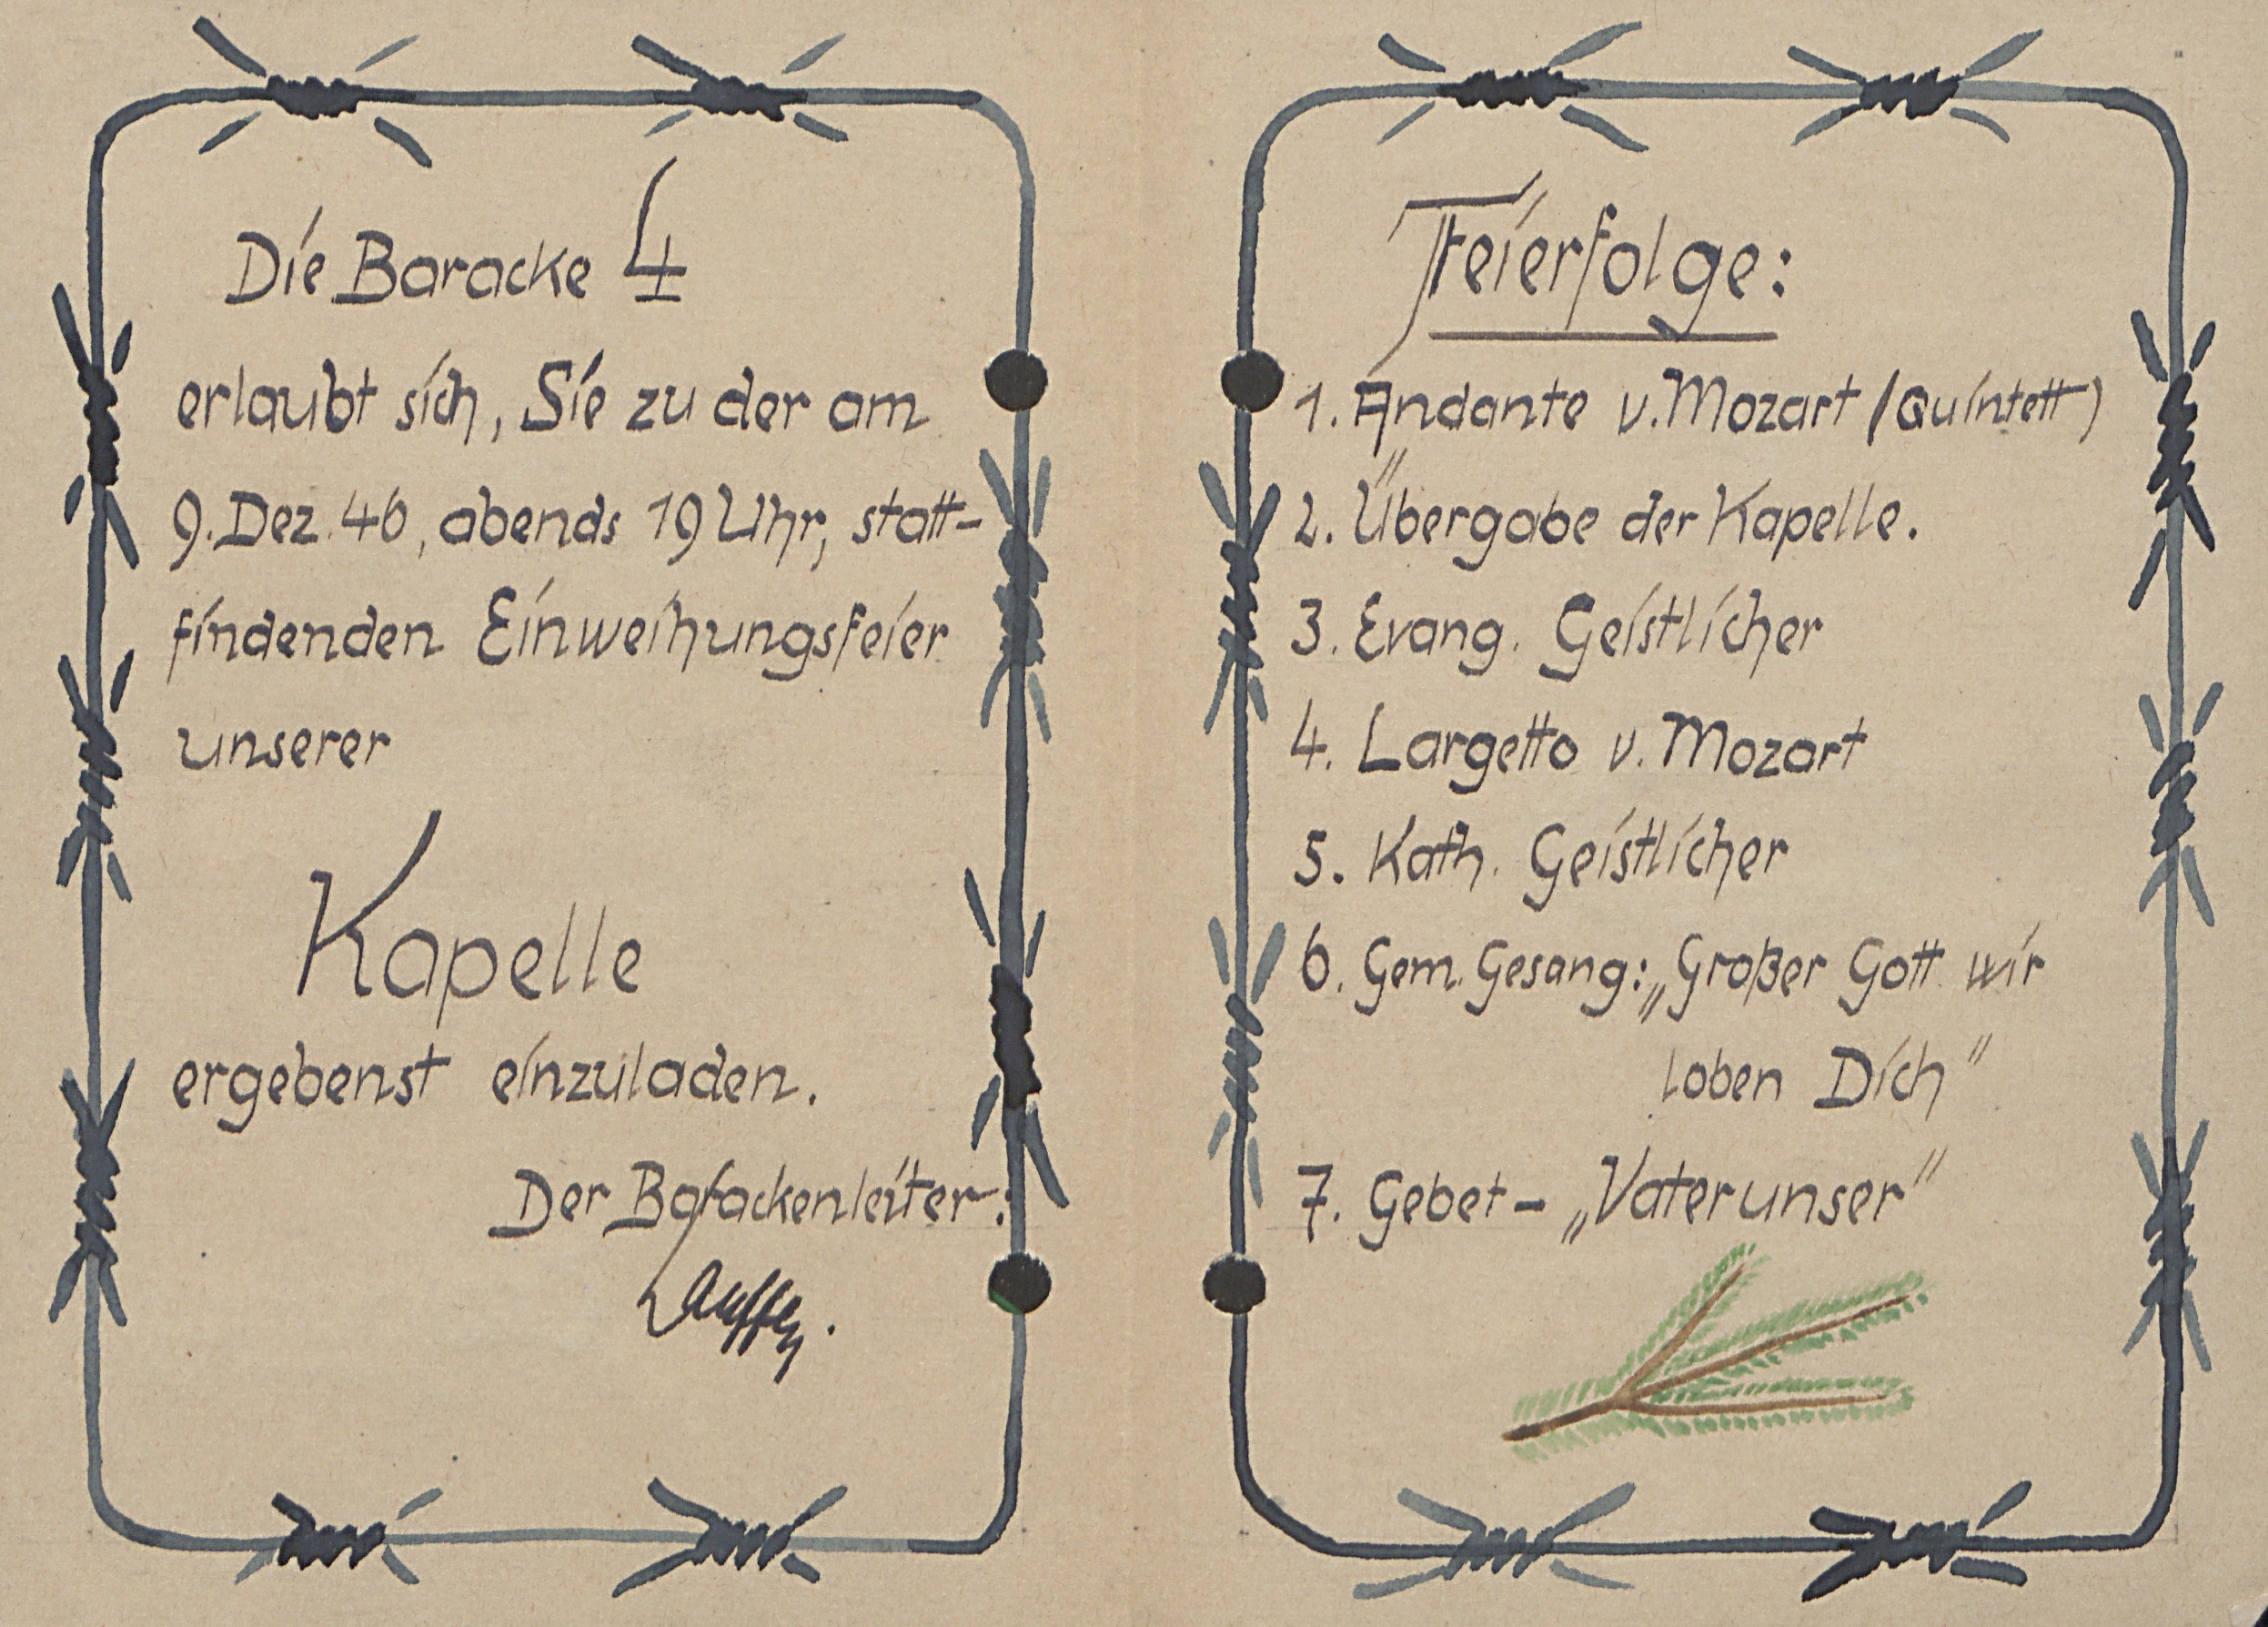 Die Baracke 4
erlaubt sich, Sie zu der am
9. Dez. 46, abends 19 Uhr, statt-
findenden Einweihungsfeier
unserer
Kapelle
ergebenst einzuladen.
Der Barackenleiter:
Feierfolge:
1. Andante v. Mozart (Quintett)
2. Übergabe der Kapelle.
3. Evang. Geistlicher
4. Largetto v. Mozart
5. Kath. Geistlicher
6. Gem. Gesang: „Großer Gott wir
loben Dich"
7. Gebet - „Vaterunser"